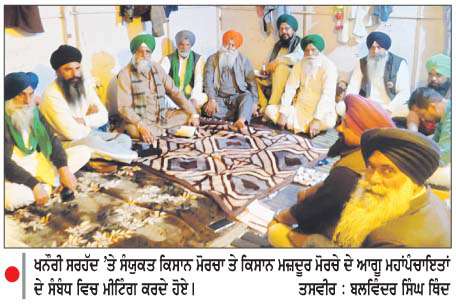 ਖਨੌਰੀ ਸਰਹੱਦ 'ਤੇ ਸੰਯੁਕਤ ਕਿਸਾਨ ਮੋਰਚਾ ਤੇ ਕਿਸਾਨ ਮਜ਼ਦੂਰ ਮੋਰਚੇ ਦੇ ਆਗੂ ਮਹਾਂਪੰਚਾਇਤਾਂ
ਦੇ ਸੰਬੰਧ ਵਿਚ ਮੀਟਿੰਗ ਕਰਦੇ ਹੋਏ। ਤਸਵੀਰ : ਬਲਵਿੰਦਰ ਸਿੰਘ ਥਿੰਦ